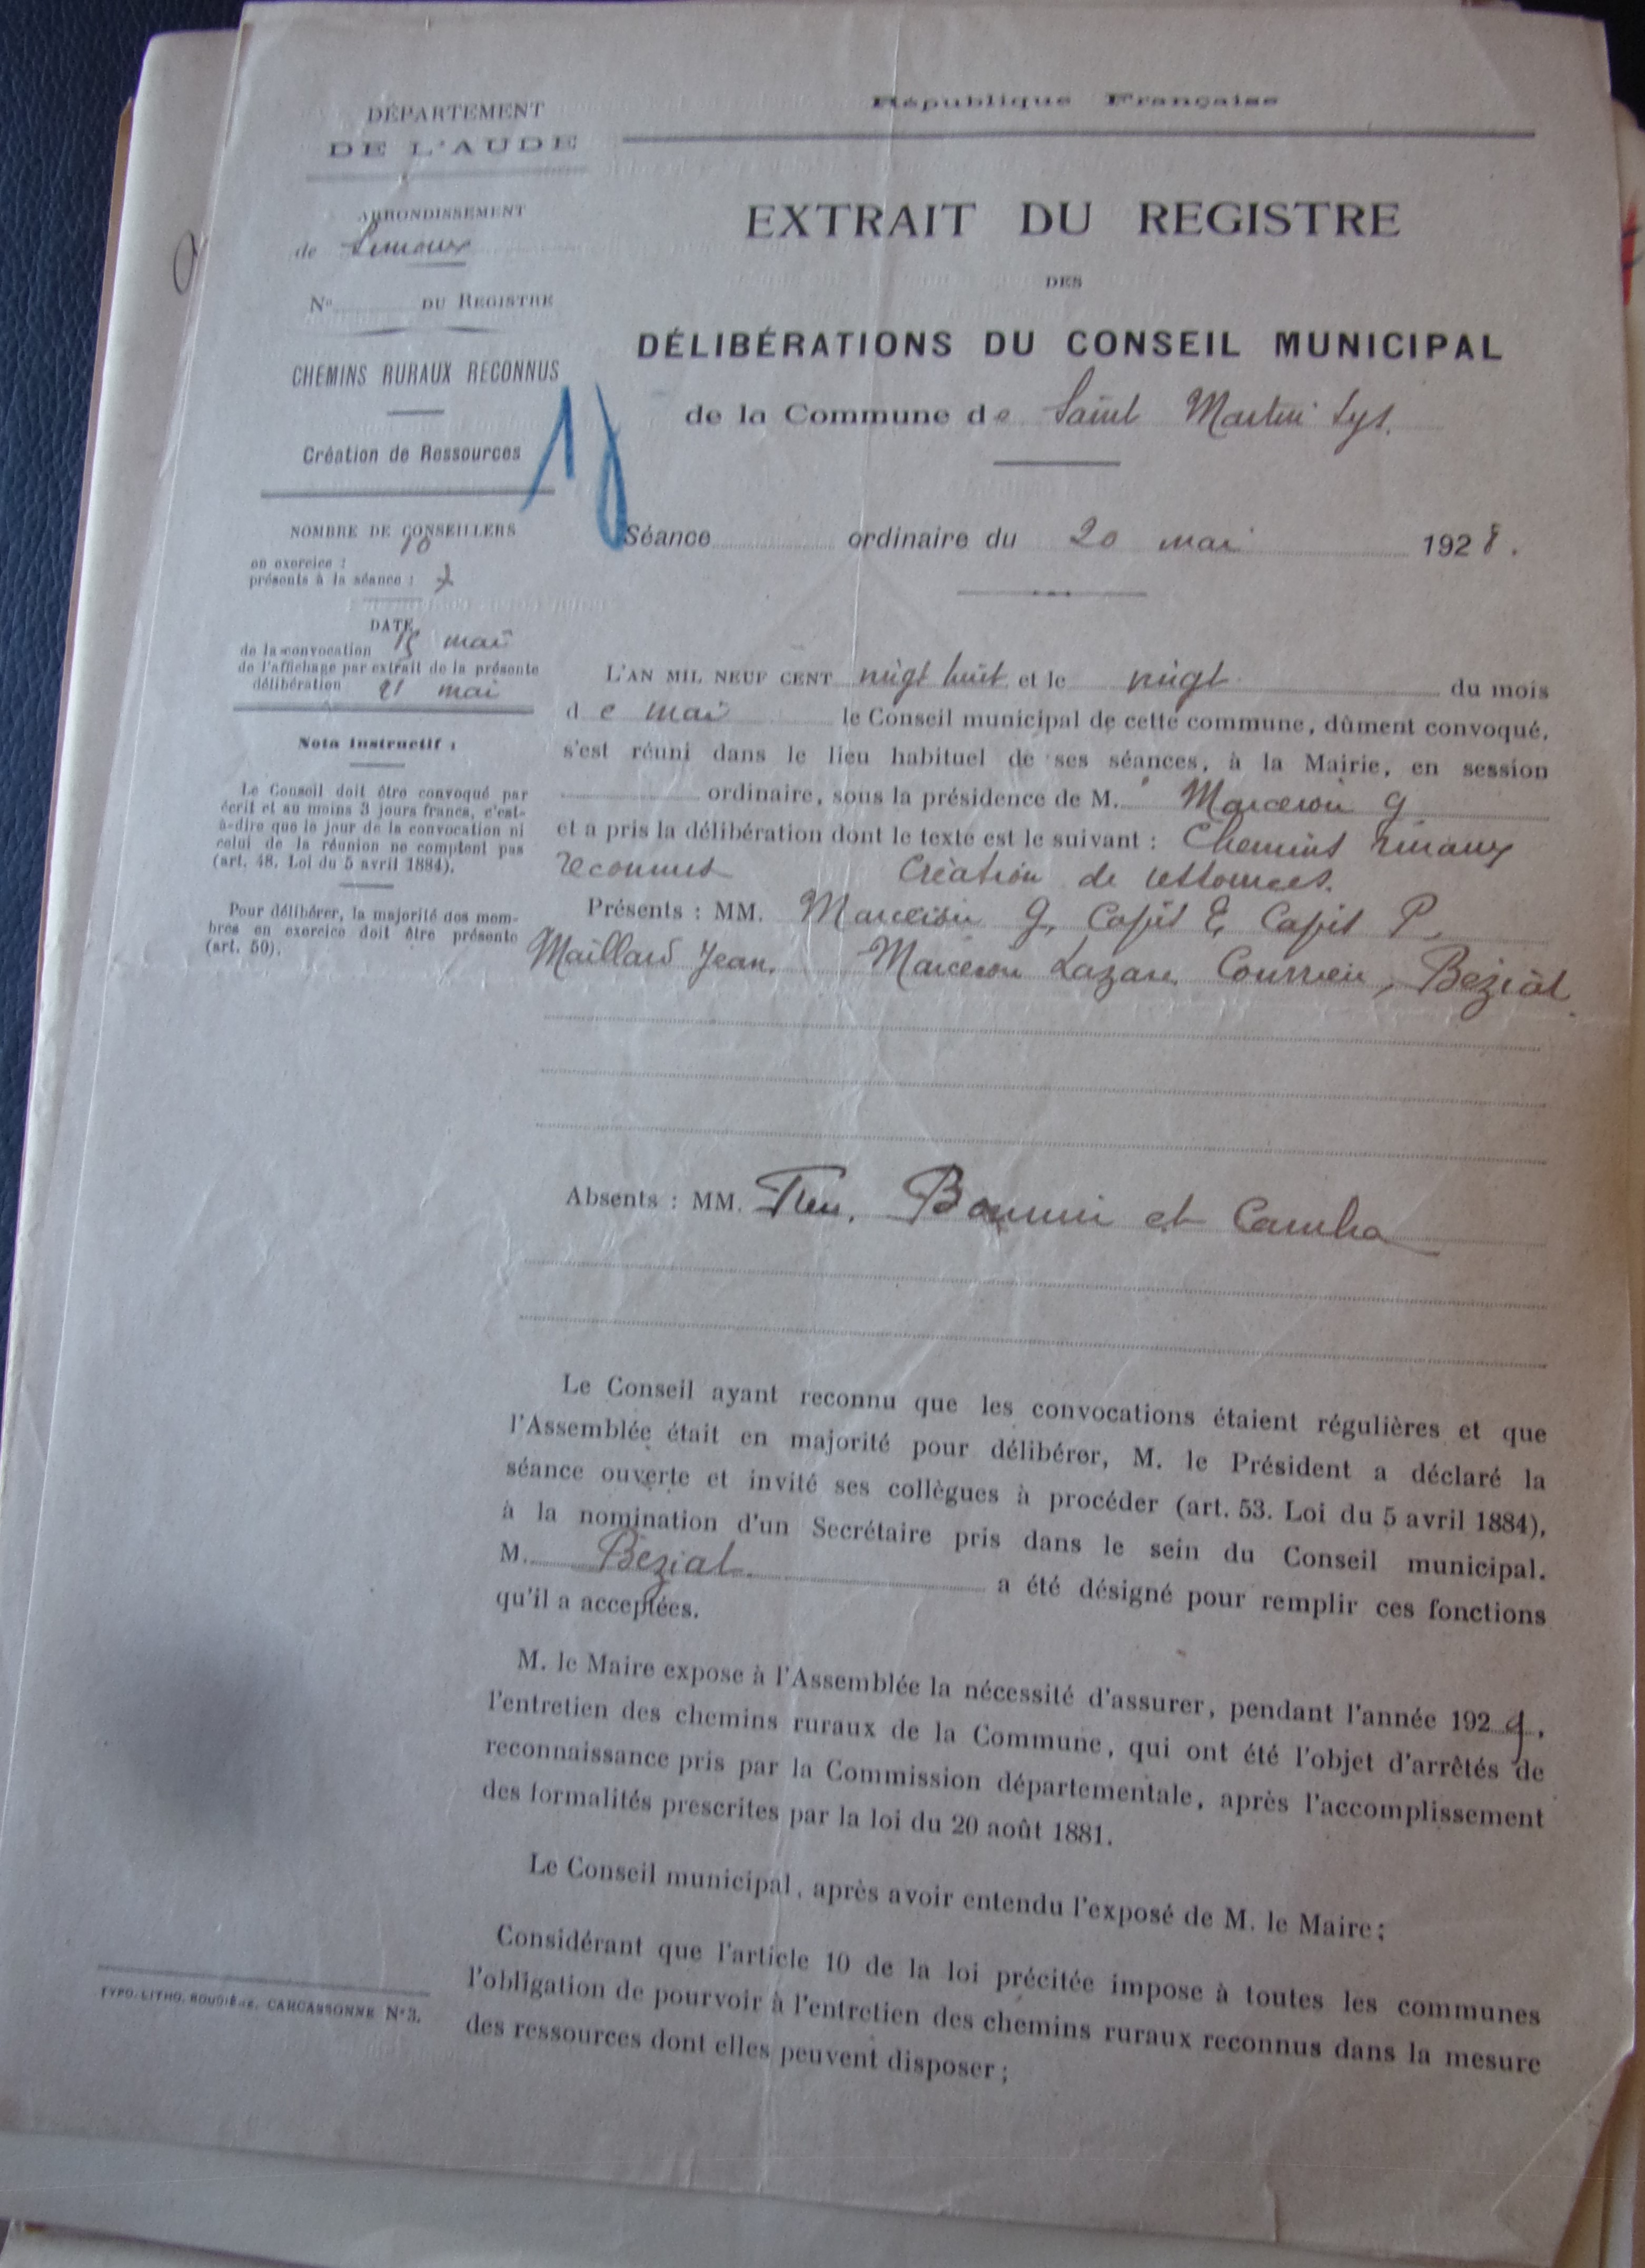 DÉPARTEMENT
DE L'AUDE
ARRONDISSEMENT
de Limoux
No DU REGISTRE
CHEMINS RURAUX RECONNUS
Création de Ressources
NOMBRE DE CONSEILLERS
en exercice : 10
présents à la séance : 7
DATE
de la convocation 15 mai
de l'affichage par extrait de la présente
délibération 21 mai
Nota Instructif :
Le Conseil doit être convoqué par
écrit et au moins 3 jours francs, c'est-
à-dire que le jour de la convocation ni
celui de la réunion ne comptent pas
(art. 48. Loi du 5 avril 1884).
Pour délibérer, la majorité des mem-
bres en exercice doit être présente
(art. 50).
TYPO. LITHO. ROUDIÈRE, CARCASSONNE No 3.
République Française
EXTRAIT DU REGISTRE
DES
DÉLIBÉRATIONS DU CONSEIL MUNICIPAL
de la Commune de Saint Martin Lys.
Séance ordinaire du 20 mai 1928.
L'AN MIL NEUF CENT vingt huit et le vingt du mois
de mai le Conseil municipal de cette commune, dûment convoqué,
s'est réuni dans le lieu habituel de ses séances, à la Mairie, en session
ordinaire, sous la présidence de M. Marceron G
et a pris la délibération dont le texte est le suivant : Chemins ruraux
reconnus Création de ressources.
Présents : MM. Marceron G, Capit E, Capit P,
Maillard Jean, Marceron Lazare, Bézial
Absents : MM. et
Le Conseil ayant reconnu que les convocations étaient régulières et que
l'Assemblée était en majorité pour délibérer, M. le Président a déclaré la
séance ouverte et invité ses collègues à procéder (art. 53. Loi du 5 avril 1884),
à la nomination d'un Secrétaire pris dans le sein du Conseil municipal.
M. Bézial a été désigné pour remplir ces fonctions
qu'il a acceptées.
M. le Maire expose à l'Assemblée la nécessité d'assurer, pendant l'année 1929,
l'entretien des chemins ruraux de la Commune, qui ont été l'objet d'arrêtés de
reconnaissance pris par la Commission départementale, après l'accomplissement
des formalités prescrites par la loi du 20 août 1881.
Le Conseil municipal, après avoir entendu l'exposé de M. le Maire ;
Considérant que l'article 10 de la loi précitée impose à toutes les communes
l'obligation de pourvoir à l'entretien des chemins ruraux reconnus dans la mesure
des ressources dont elles peuvent disposer ;